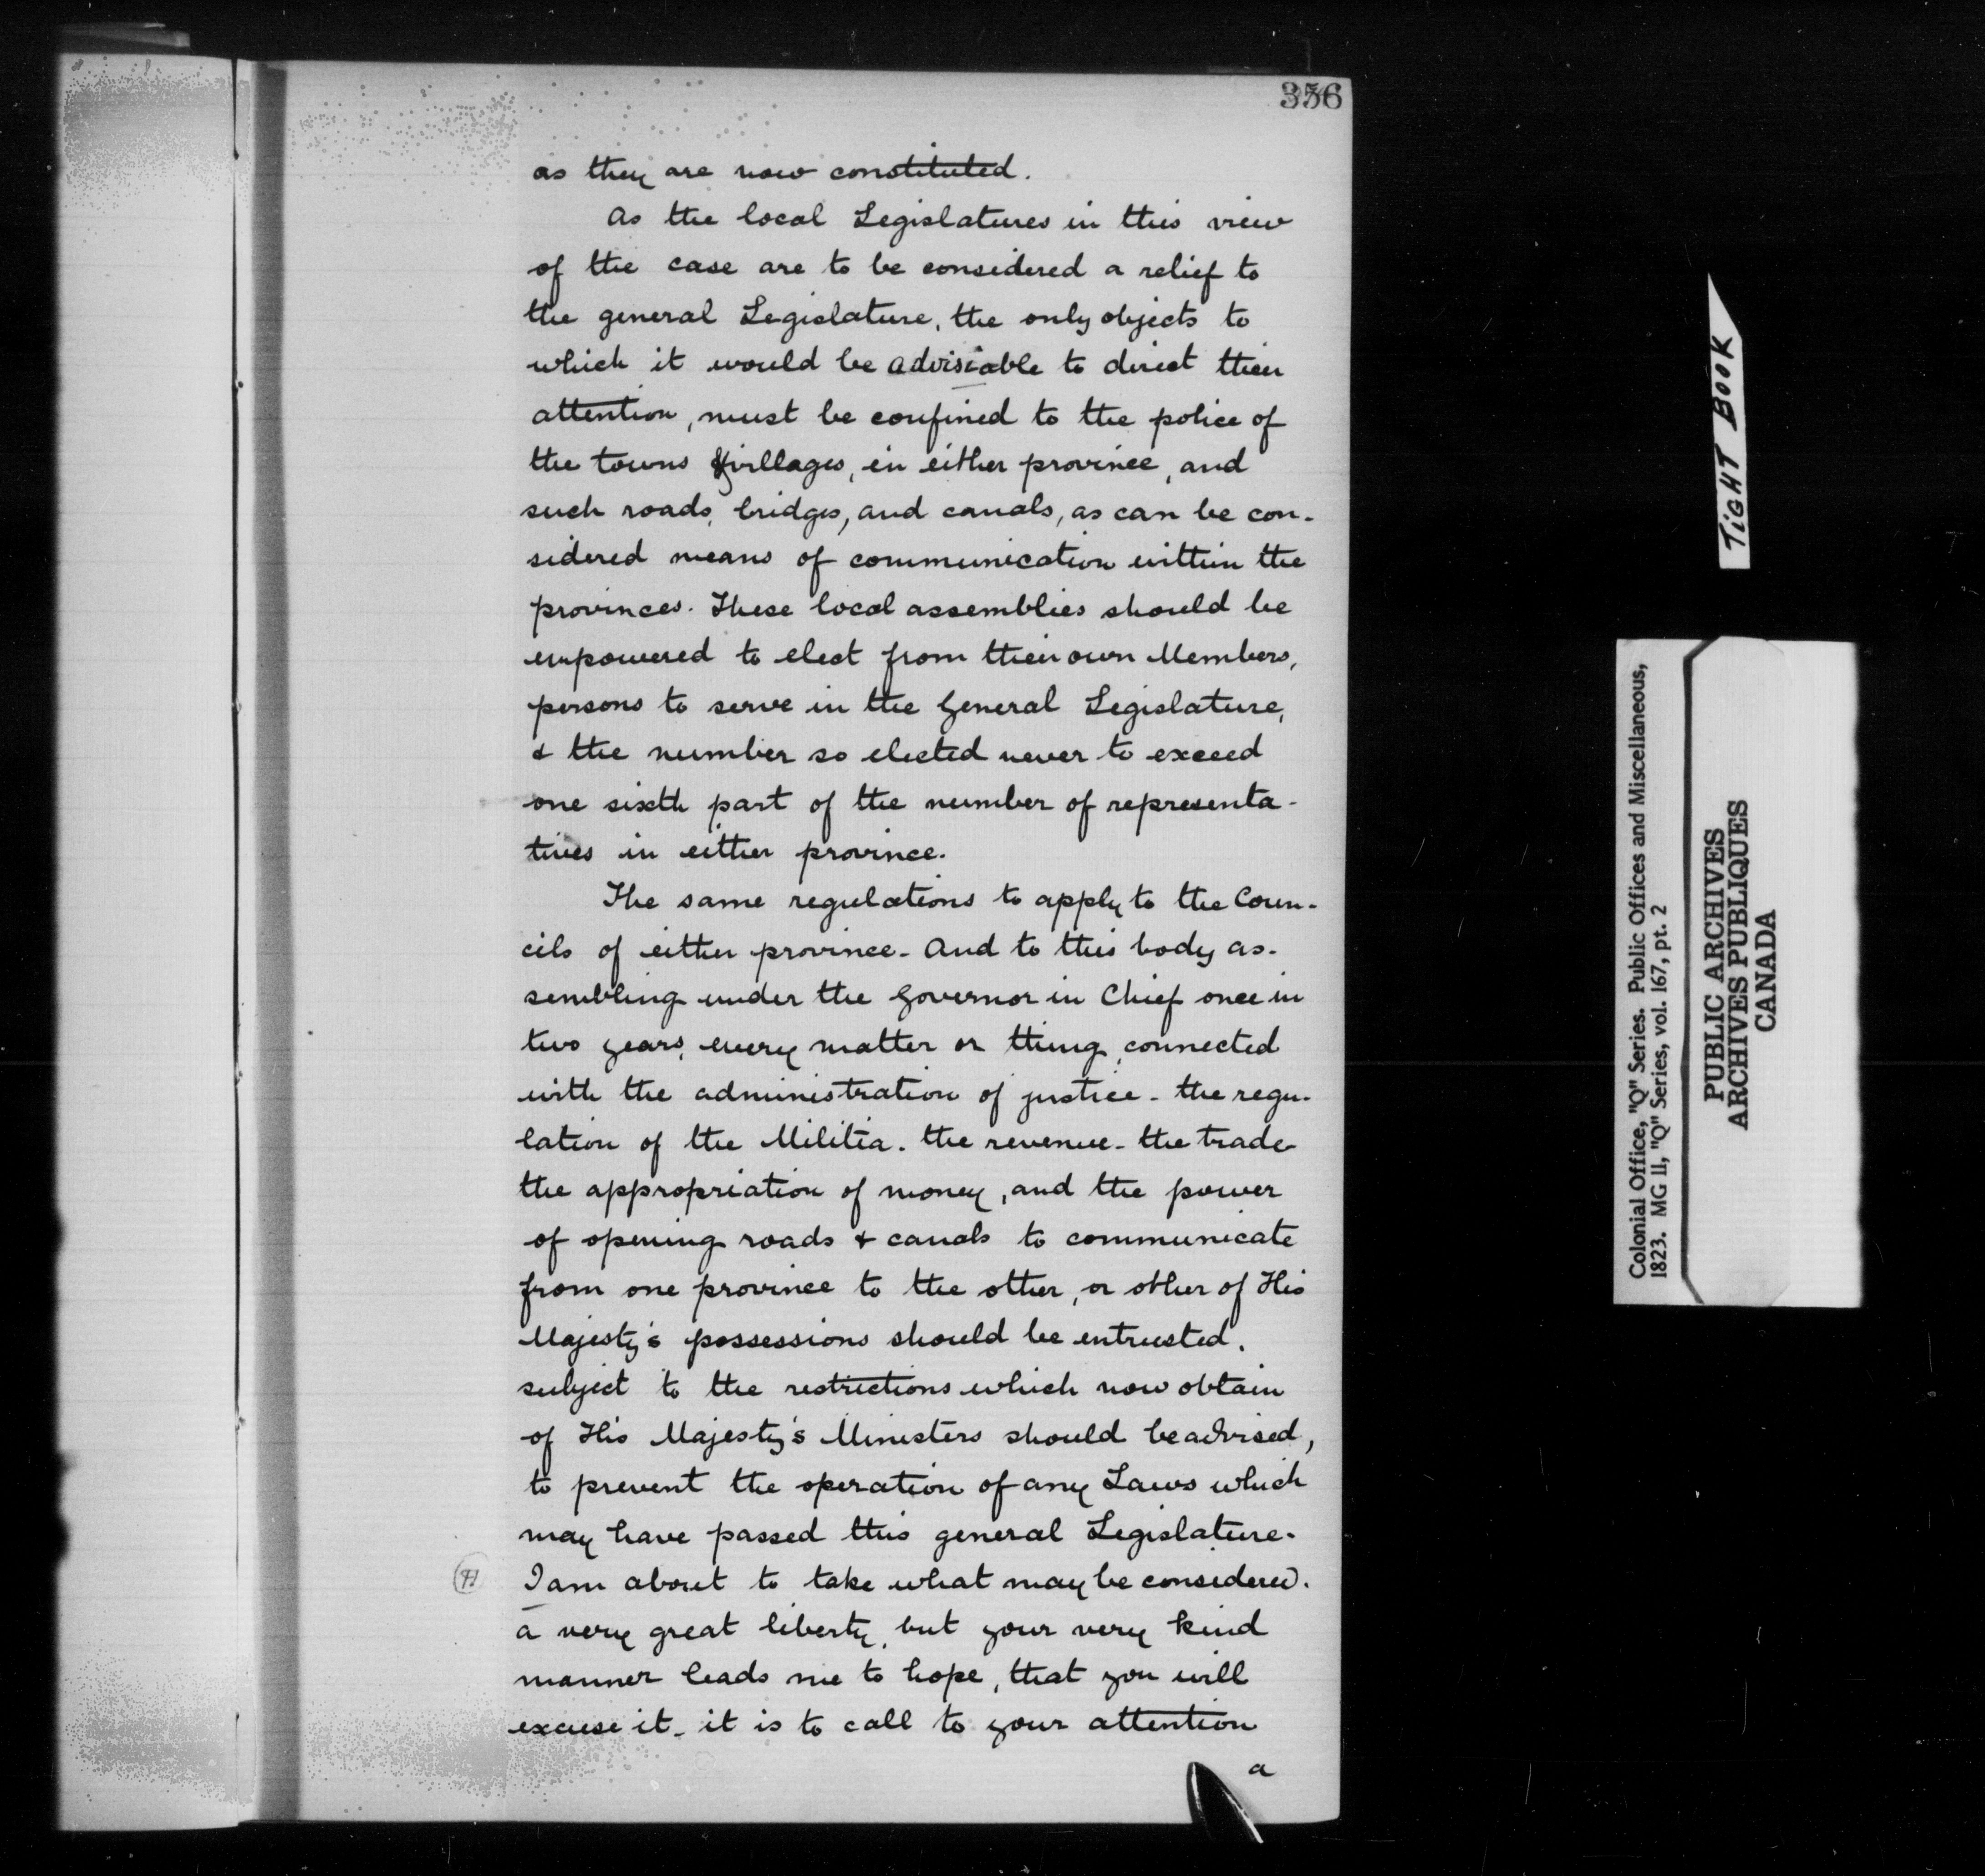 356
as they are now constituted.
As the local Legislatures in this view
of the case are to be considered a relief to
the general Legislature, the only objects to
which it would be adviseable to direct their
attention, must be confined to the police of
the towns & villages, in either province, and
such roads, bridges, and canals, as can be con-
sidered means of communication within the
provinces. These local assemblies should be
empowered to elect from their own Members,
persons to serve in the General Legislature,
& the number so elected never to exceed
one sixth part of the number of representa-
tives in either province.
The same regulations to apply to the Coun-
cils of either province - And to this body as-
sembling under the Governor in Chief once in
two years, every matter or thing, connected
with the administration of justice - the regu-
lation of the Militia - the revenue - the trade
the appropriation of money, and the power
of opening roads & canals to communicate
from one province to the other, or other of His
Majesty's possessions should be entrusted,
subject to the restrictions which now obtain
of His Majesty's Ministers should be advised,
to prevent the operation of any Laws which
may have passed this general Legislature.
I am about to take what may be considered.
a very great liberty, but your very kind
manner leads me to hope, that you will
excuse it - it is to call to your attention
a
TIGHT BOOK
Colonial Office, "Q" Series. Public Offices and Miscellaneous,
1823. MG 11, "Q" Series, vol. 167, pt. 2
PUBLIC ARCHIVES
ARCHIVES PUBLIQUES
CANADA